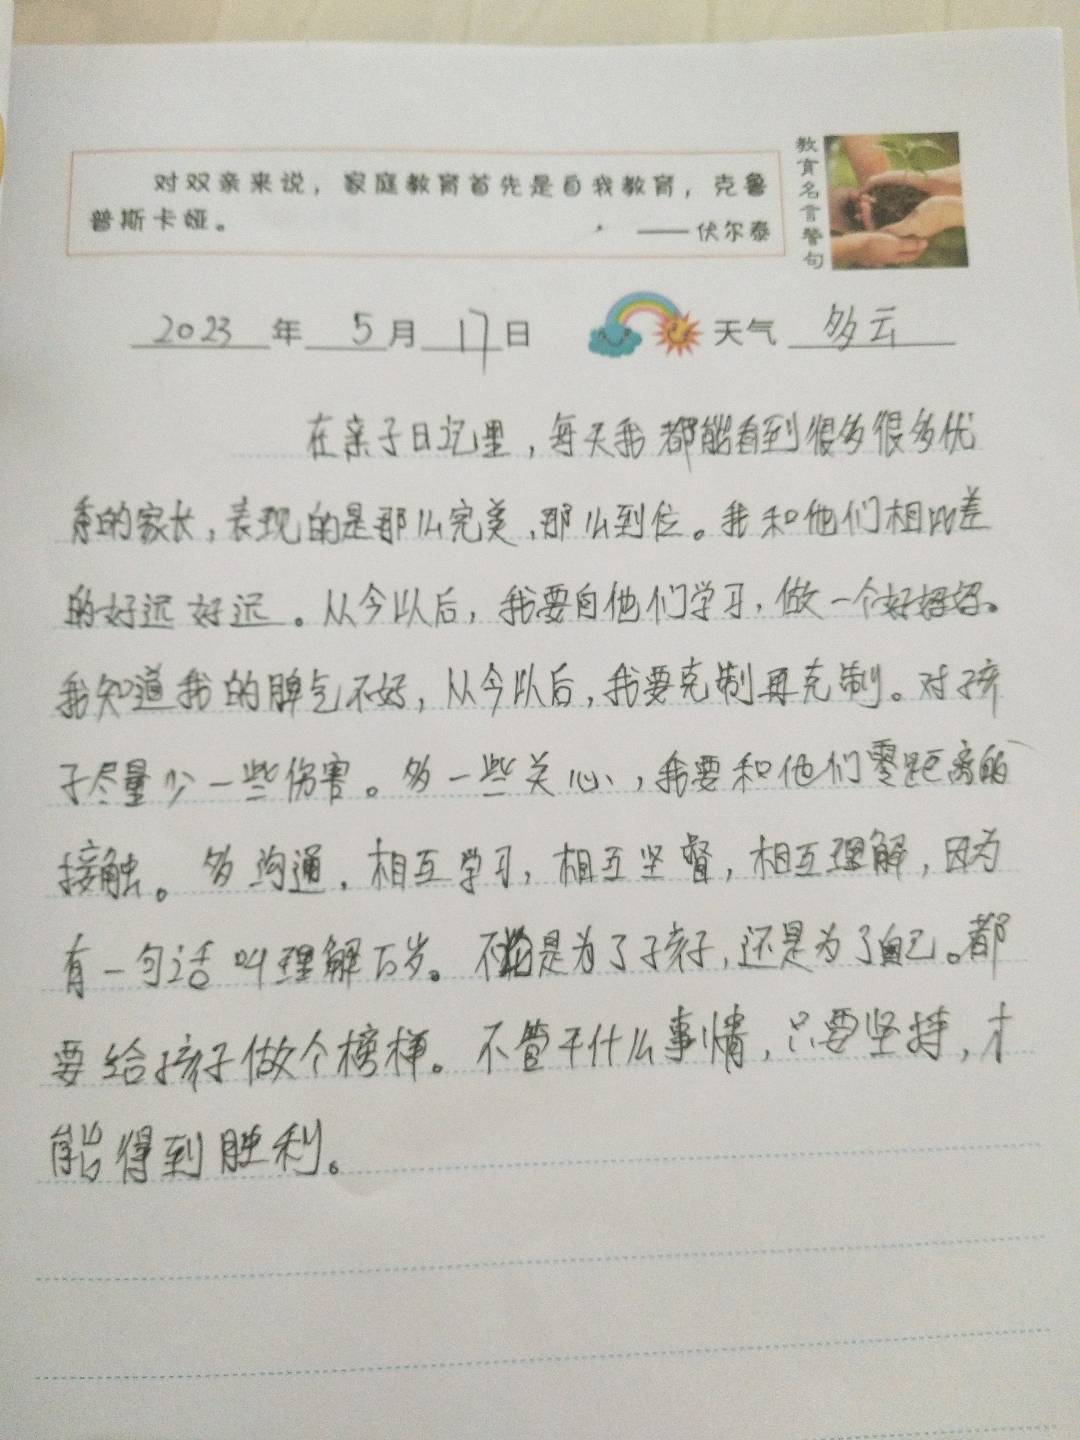 对双亲来说，家庭教育首先是自我教育，克鲁
普斯卡娅。
——伏尔泰
教育名言警句
2023年5月17日 天气 多云
在亲子日记里，每天我都能看到很多很多优
秀的家长，表现的是那么完美，那么到位。我和他们相比差
的好远好远。从今以后，我要向他们学习，做一个好妈妈。
我知道我的脾气不好，从今以后，我要克制再克制。对孩
子尽量少一些伤害。多一些关心，我要和他们零距离的
接触。多沟通，相互学习，相互坚督，相互理解，因为
有一句话叫理解万岁。不论是为了孩子，还是为了自己。都
要给孩子做个榜样。不管干什么事情，只要坚持，才
能得到胜利。